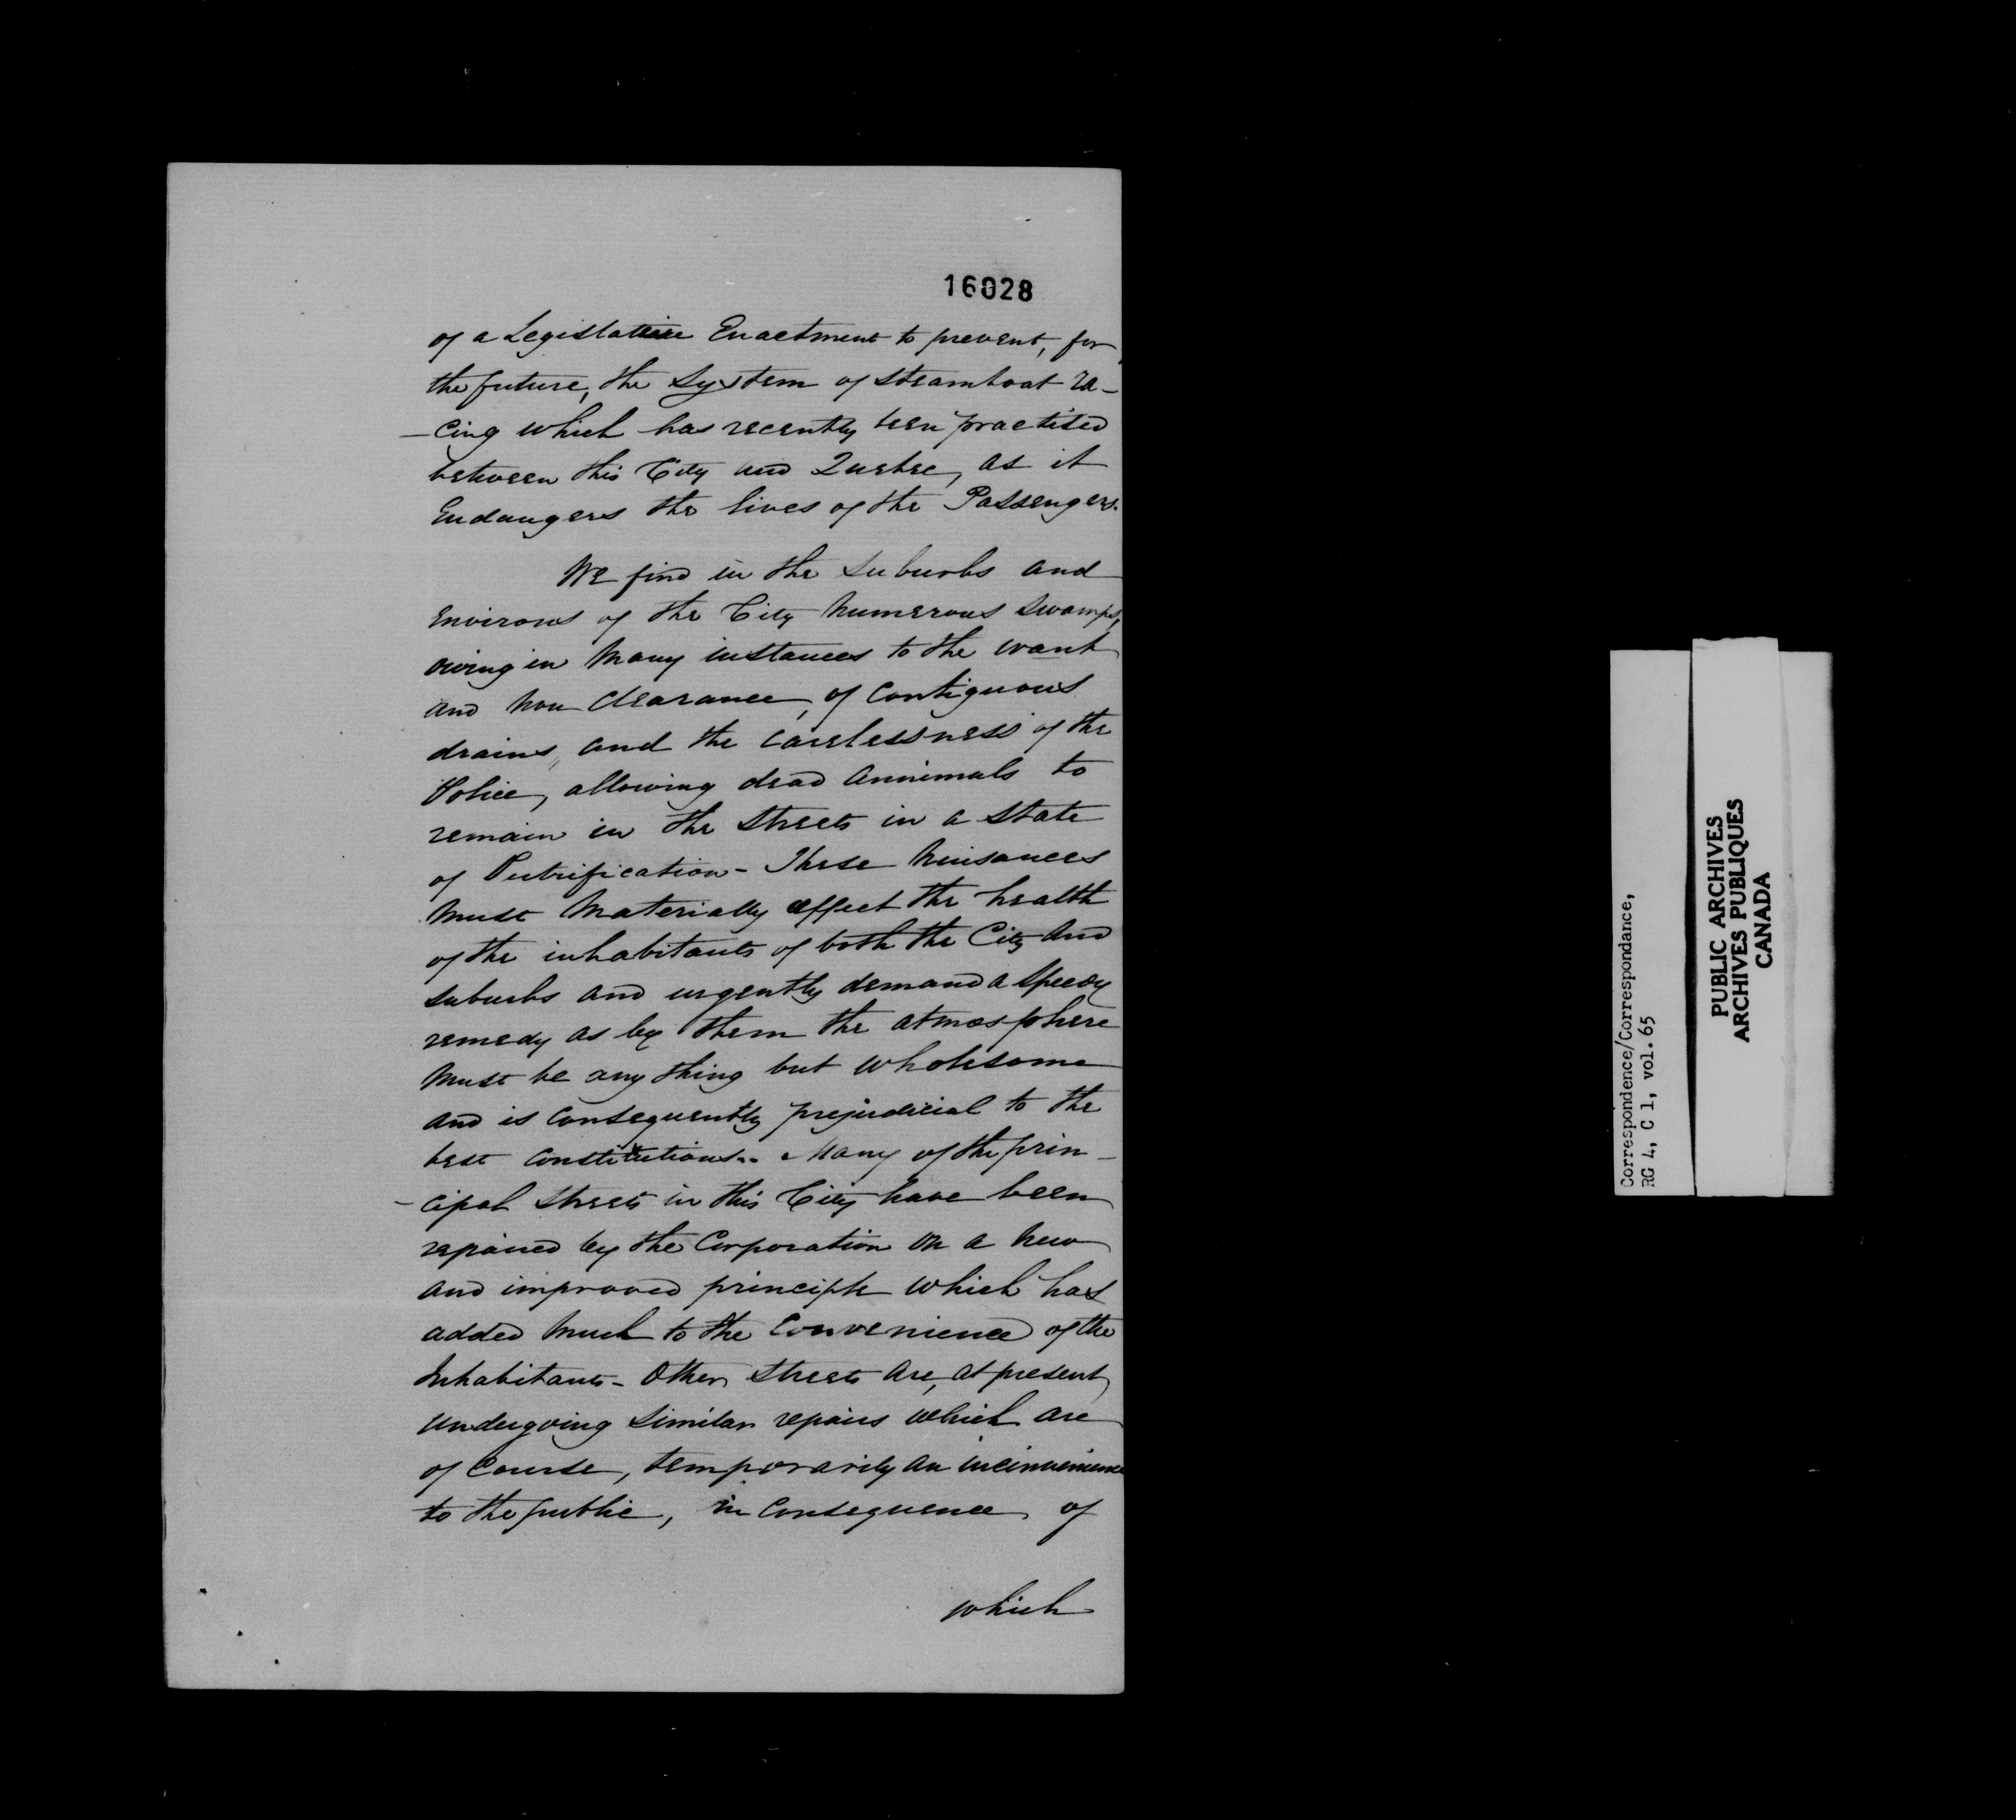 16028
of a Legislative Enactment to prevent, for
the future, the System of steamboat ra-
-cing which has recently been practised
between this City and Quebec, as it
Endangers the lives of the Passengers.
We find in the Suburbs and
Environs of the City numerous Swamps,
owing in many instances to the want
and non clearance, of Contiguous
drains, and the Carelessness of the
Police, allowing dead Annimals to
remain in the Streets in a State
of Putrification - These Nuisances
must materially affect the health
of the inhabitants of both the City and
suburbs and urgently demand a speedy
remedy as by them the atmosphere
must be any thing but wholesome
and is Consequently prejudicial to the
best Constitutions.. Many of the prin-
-cipal Streets in this City have been
repaired by the Corporation on a new
and improved principle which has
added much to the Convenience of the
Inhabitants - Other Streets are, at present
undergoing similar repairs which are
of Course, temporarily an inconvenience
to the public, in Consequence of
which
Correspondence/Correspondance,
RG 4, C 1, vol. 65
PUBLIC ARCHIVES
ARCHIVES PUBLIQUES
CANADA